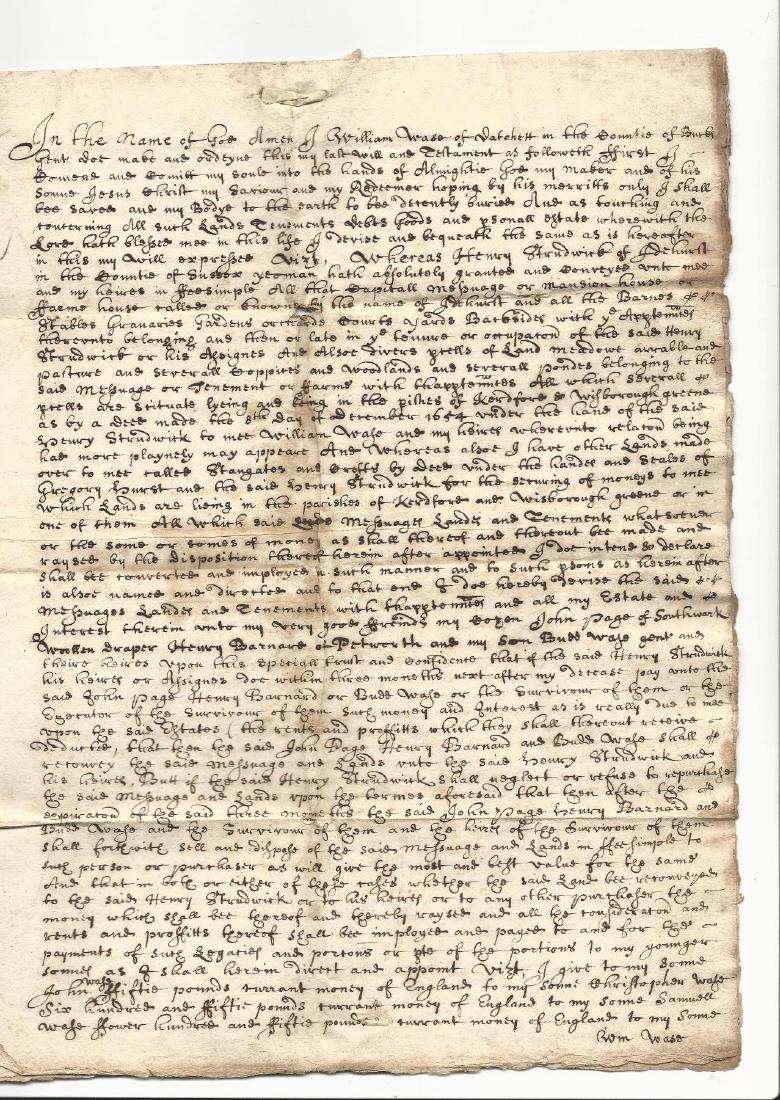 In the Name of God Amen I William Wase of Datchett in the Countie of Bucks
gent doe make and ordeyne this my last Will and Testament as followeth ffirst I
Comend and Comitt my soule into the hands of Almightie God my Maker and of his
Sonne Jesus Christ my Saviour and my Redeemer hoping by his merritts only I shall
bee saved and my Bodye to the earth to bee decently buried And as touching and
concerning All such Lands Tenements debts goods and psonall estate wherewith the
Lord hath blessed mee in this life I devise and bequeath the same as is hereafter
in this my Will expressed Vizt, Whereas Henry Strudwick of Idehurst
in the Countie of Sussex yeoman hath absolutely granted and Conveyed vnto mee
and my heires in ffeesimple All that Capitall Message or mansion house or
ffarme house called or knowne by the name of Idehurst and all the Barnes
Stables Granaries Gardens orchards Courts yards Backsides with ye Apptennces
thereunto belonging and then or late in ye tenure or occupacon of the said Henry
Strudwick or his Assignes And Alsoe divers pcells of Land meadowe arrable and
pasture and severall Coppices and woodlands and severall pondes belonging to the
said Message or Tenement or ffarme with thapptennces All which severall
pcells are scituate lyeing and being in the pishes of Kerdford & Wisborough greene
as by a deed made the 8th day of december 1654 vnder the hand of the said
Henry Strudwick to mee William Wase and my heires wherevnto relacon being
had more playnely may appeare And whereas alsoe I have other Lands made
over to mee called Stangates and Crofts by deed vnder the handes and Seales of
Gregory Hurst and the said Henry Strudwick for the securing of moneys to mee
which Lands are lieing in the parishes of Kerdford and Wisborough greene or in
one of them All which said Messuages Landes and Tenements whatsoever
or the some or somes of money as shall thereof and thereout bee made and
raysed by the disposition thereof herein after appointed I doe intend & declare
shall bee converted and imployed in such manner and to such psons as herein after
is alsoe named and directed and to that end I doe hereby devise the said
Messuages Landes and Tenements with thapptennces and all my Estate and
Interest therein vnto my very good ffreinds my Cozen John Page of Southwark
Wollen draper Henry Barnard of Petworth and my Son Budd Wase gent and
theire heires vpon this speciall trust and Confidence that if the said Henry Strudwick
his heires or Assignes doe within three moneths next after my decease pay vnto the
said John Page Henry Barnard or Budd Wase or the Survivour of them or the
Executor of the Survivour of them such money and Interest as is really due to mee
vpon the said Estates (the rents and proffitts which they shall thereout receive
deducted, that then the said John Page Henry Barnard and Budd Wase shall
reconvey the said Message and Lands vnto the said Henry Strudwick and
his heires, Butt if the said Henry Strudwick shall neglect or refuse to repurchase
the said Message and Lands vpon the termes aforesaid that then after the
expiracon of the said three moneths the said John Page Henry Barnard and
Budd Wase and the Survivour of them and the heires of the Survivour of them
shall forthwith sell and dispose of the said Message and Lands in ffeesimple to
such person or purchaser as will give the most and best value for the same
And that in both or either of these cases whether the said Land bee reconveyed
to the said Henry Strudwick or to his heires or to any other purchaser the
money which shall bee thereof and thereby raysed and all the consideracon and
rents and proffitts thereof shall bee imployed and payed to and for the
payments of such Legacies and porcons or pte of the portions to my younger
sonnes as I shall herein direct and appoint Vizt, I give to my Sonne
John Wase ffiftie pounds currant money of England to my Sonne Christopher Wase
Six hundred and ffiftie pounds currant money of England to my Sonne Samuell
Wase ffower hundred and ffiftie pounds currant money of England to my Sonne
Wm Wase